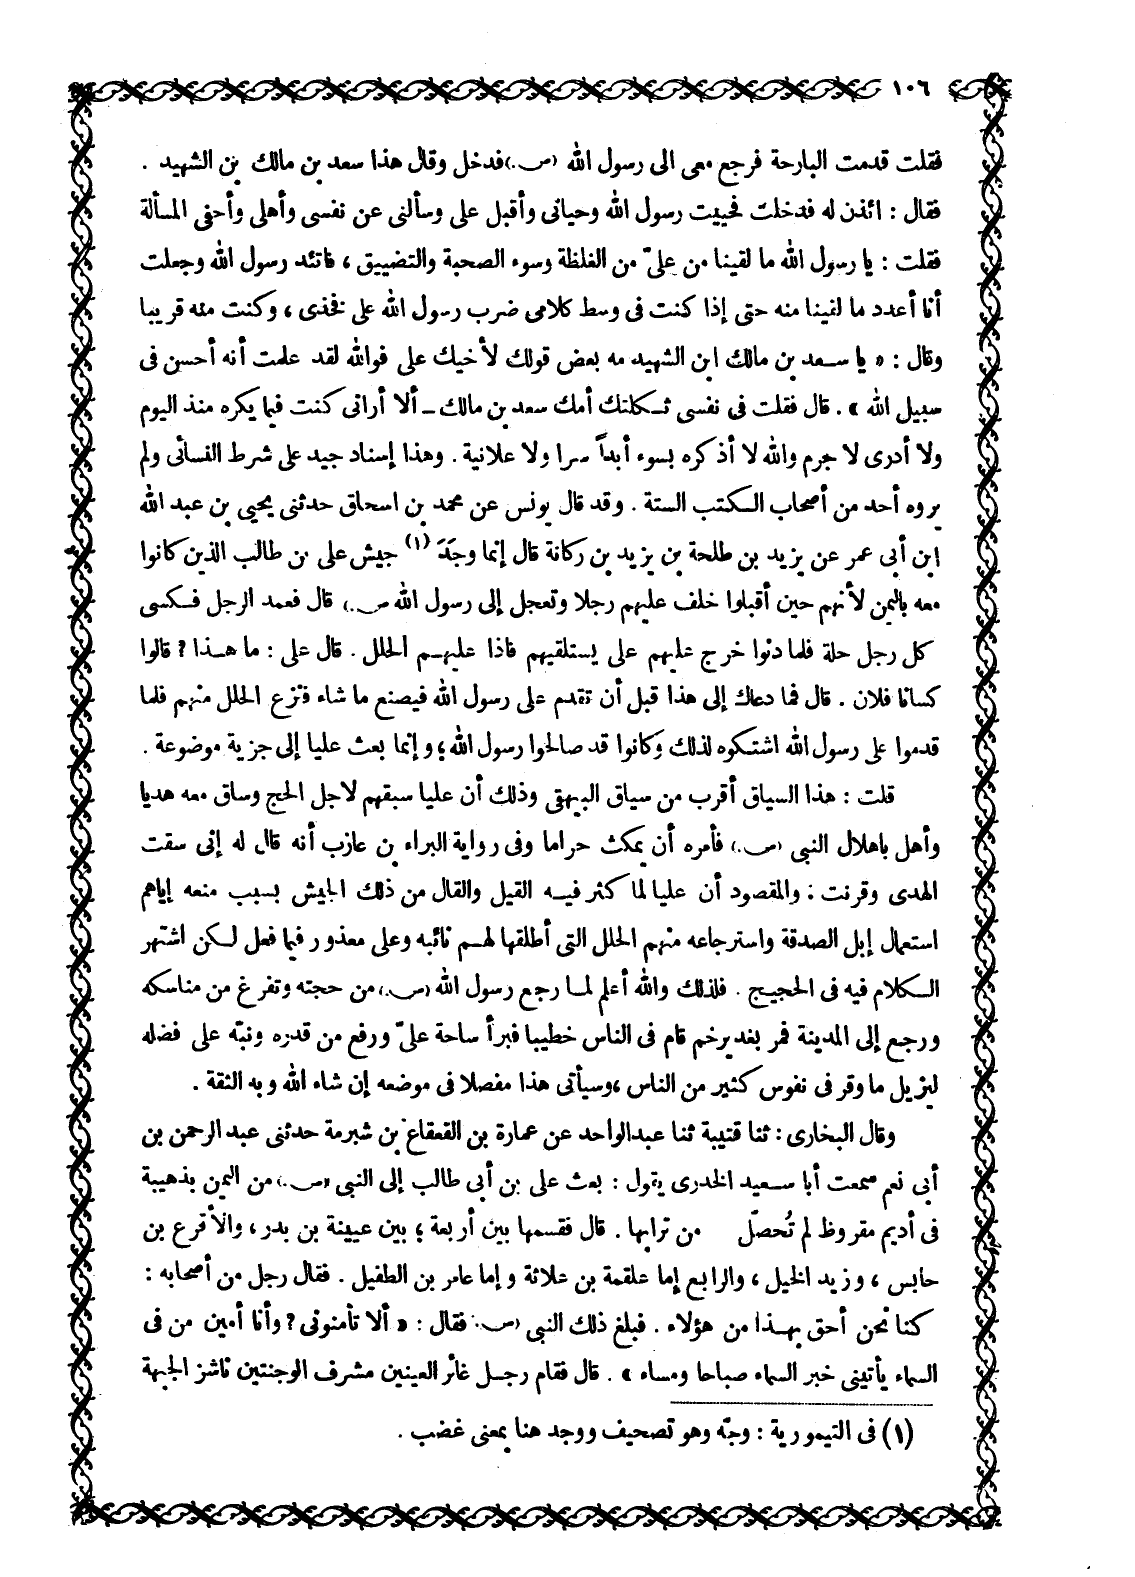 ١٠٦
فقلت قدمت البارحة فرجع معى الى رسول الله (ص.) فدخل وقال هذا سعد بن مالك بن الشهيد .
فقال : ائذن له فدخلت فحييت رسول الله وحيانى وأقبل على وسألنى عن نفسى وأهلى وأحفى المسألة
فقلت : يا رسول الله ما لقينا من علىّ من الغلظة وسوء الصحبة والتضييق ، فاتئد رسول الله وجعلت
أنا أعدد ما لقينا منه حتى إذا كنت فى وسط كلامى ضرب رسول الله على فخذى ، وكنت منه قريبا
وقال : « يا سعد بن مالك ابن الشهيد مه بعض قولك لأخيك على فوالله لقد علمت أنه أحسن فى
سبيل الله » . قال فقلت فى نفسى ثكلتك أمك سعد بن مالك ــ ألا أرانى كنت فيما يكره منذ اليوم
ولا أدرى لا جرم والله لا أذكره بسوء أبداً سرا ولا علانية . وهذا إسناد جيد على شرط النسائى ولم
يروه أحد من أصحاب الكتب الستة . وقد قال يونس عن محمد بن اسحاق حدثنى يحيى بن عبد الله
ابن أبى عمر عن يزيد بن طلحة بن يزيد بن ركانة قال إنما وجَدَ (١) جيش على بن طالب الذين كانوا
معه باليمن لأنهم حين أقبلوا خلف عليهم رجلا وتعجل إلى رسول الله (ص.) قال فعمد الرجل فكسى
كل رجل حلة فلما دنوا خرج عليهم على يستلقيهم فاذا عليهم الحلل . قال على : ما هذا ؟ قالوا
كسانا فلان . قال فما دعاك إلى هذا قبل أن تقدم على رسول الله فيصنع ما شاء فنزع الحلل منهم فلما
قدموا على رسول الله اشتكوه لذلك وكانوا قد صالحوا رسول الله ؛ وإنما بعث عليا إلى جزية موضوعة .
قلت : هذا السياق أقرب من سياق البيهقى وذلك أن عليا سبقهم لاجل الحج وساق معه هديا
وأهل باهلال النبى (ص.) فأمره أن يمكث حراما وفى رواية البراء بن عازب أنه قال له إنى سقت
الهدى وقرنت : والمقصود أن عليا لما كثر فيه القيل والقال من ذلك الجيش بسبب منعه إياهم
استعمال إبل الصدقة واسترجاعه منهم الحلل التى أطلقها لهم نائبه وعلى معذور فيما فعل لكن اشتهر
الكلام فيه فى الحجيج . فلذلك والله أعلم لما رجع رسول الله (ص.) من حجته وتفرغ من مناسكه
ورجع إلى المدينة فمر بغدير خم قام فى الناس خطيبا فبرأ ساحة علىّ ورفع من قدره ونبّه على فضله
ليزيل ما وقر فى نفوس كثير من الناس ، وسيأتى هذا مفصلا فى موضعه إن شاء الله وبه الثقة .
وقال البخارى : ثنا قتيبة ثنا عبدالواحد عن عمارة بن القعقاع بن شبرمة حدثنى عبد الرحمن بن
أبى نعم سمعت أبا سعيد الخدرى يقول : بعث على بن أبى طالب إلى النبى (ص.) من اليمن بذهيبة
فى أديم مقروظ لم تُحصّل من ترابها . قال فقسمها بين أربعة ؛ بين عيينة بن بدر ، والأقرع بن
حابس ، وزيد الخيل ، والرابع إما علقمة بن علاثة وإما عامر بن الطفيل . فقال رجل من أصحابه :
كنا نحن أحق بهذا من هؤلاء . فبلغ ذلك النبى (ص.) فقال : « ألا تأمنونى ؟ وأنا أمين من فى
السماء يأتينى خبر السماء صباحا ومساء » . قال فقام رجل غائر العينين مشرف الوجنتين ناشز الجبهة
(١) فى التيمورية : وجّه وهو تصحيف ووجد هنا بمعنى غضب .